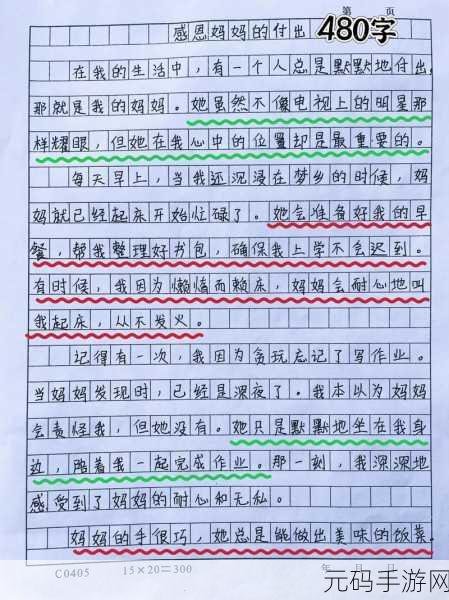 第 页
感恩妈妈的付出 480字
在我的生活中,有一个人总是默默地付出,
那就是我的妈妈。她虽然不像电视上的明星那
样耀眼,但她在我心中的位置却是最重要的。
每天早上,当我还沉浸在梦乡的时候,妈
妈就已经起床开始忙碌了。她会准备好我的早
餐,帮我整理好书包,确保我上学不会迟到。
有时候,我因为懒惰而赖床,妈妈会耐心地叫
我起床,从不发火。
记得有一次,我因为贪玩忘记了写作业。
当妈妈发现时,已经是深夜了。我本以为妈妈
会责怪我,但她没有。她只是默默地坐在我身
边,陪着我一起完成作业。那一刻,我深深地
感受到了妈妈的耐心和无私。
妈妈的手很巧,她总是能做出美味的饭菜。
C0405 15×20=300 年 月 日
元码手游网